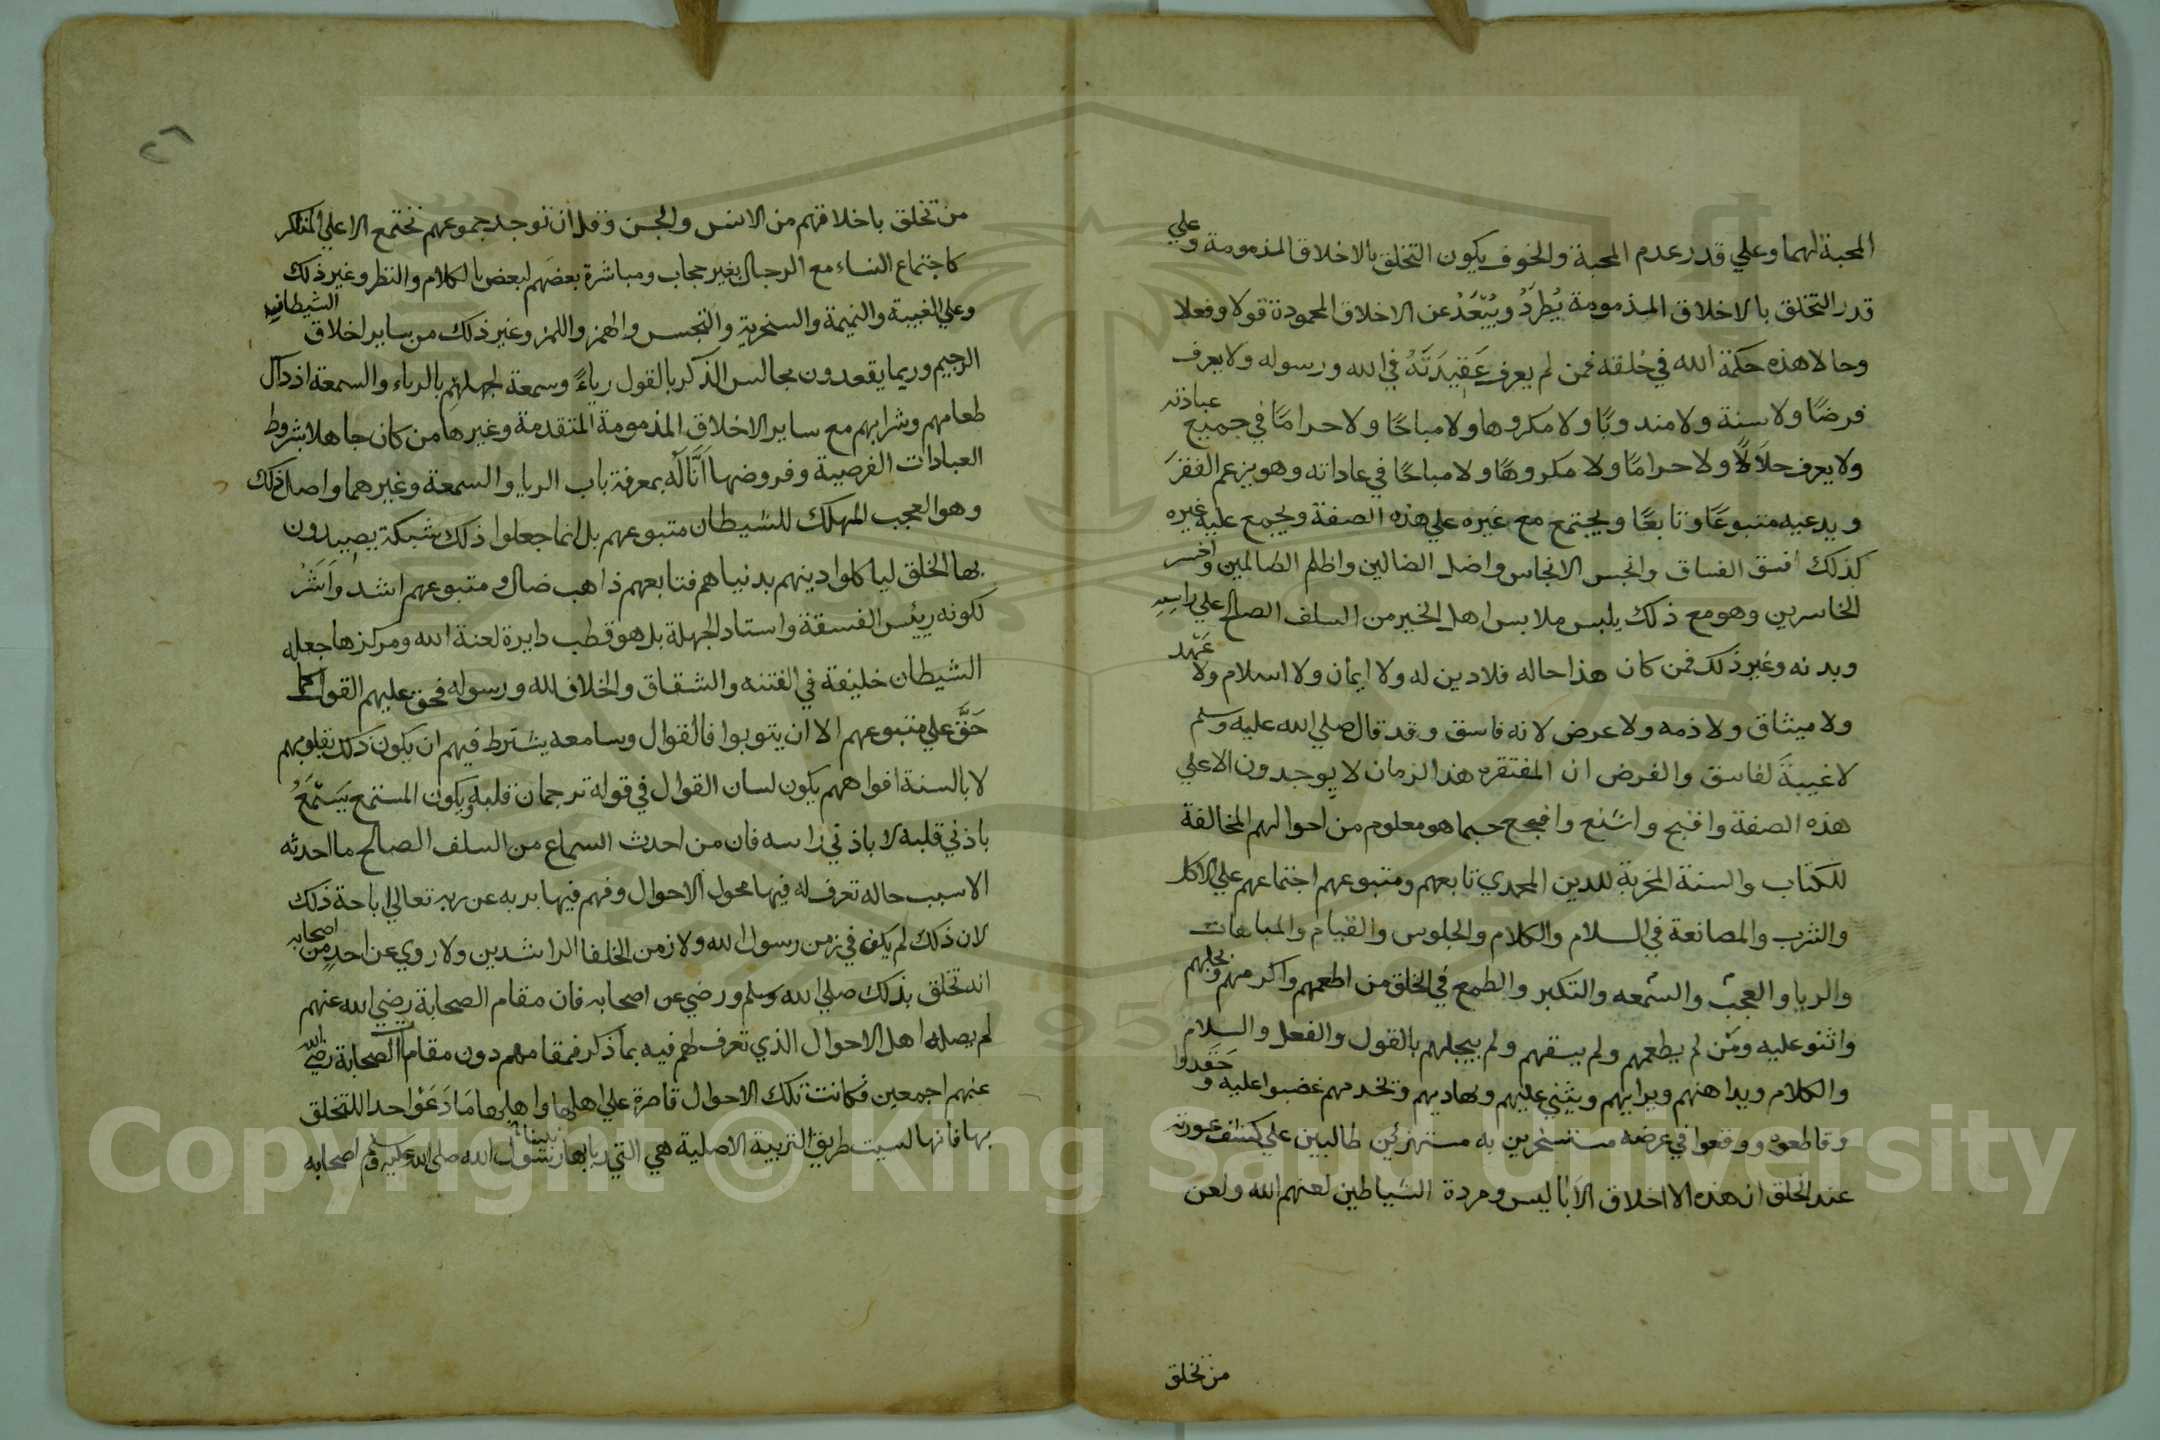 المحبة لهما وعلي قدر عدم المحبة والخوف يكون التخلق بالاخلاق المذمومة وعلي
قدر التخلق بالاخلاق المذمومة يُطرَدُ ويُبّعَدُ عن الاخلاق المحمودة قولا وفعلا
وحالا هذه حكمة الله في خلقه فمن لم يعرف عَقِيدَتَهُ في الله ورسوله ولا يعرف
فرضًا ولا سنة ولا مندوبًا ولا مكروها ولا مباحًا ولا حرامًا في جميع عباداته
ولا يعرف حلالًا ولا حرامًا ولا مكروهًا ولا مباحًا في عاداته وهو يزعم الفقرَ
ويدعيه متبوعًا وتابعًا ويجتمع مع غيره علي هذه الصفة ويجمع عليه غيره
كذلك افسق الفساق وانجس الانجاس واضل الضالين واظلم الظالمين واخسر
الخاسرين وهو مع ذلك يلبس ملابس اهل الخير من السلف الصالح علي راسه
وبدنه وغير ذلك فمن كان هذا حاله فلا دين له ولا ايمان ولا اسلام ولا عَهْد
ولا ميثاق ولا ذمه ولا عرض لانه فاسق وقد قال صلي الله عليه وسلم
لا غيبةَ لفاسق والفرض ان المفتقره هذا الزمان لا يوجدون الا علي
هذه الصفة واقبح واشنع وافجع حسبما هو معلوم من احوالهم المخالفة
للكتاب والسنة المخربة للدين المحمدي تابعهم ومتبوعهم اجتماعهم علي الاكل
والشرب والمصانعة في السلام والكلام والجلوس والقيام والمباهات
والريا والعجب والسمعه والتكبر والطمع في الخلق من اطعمهم واكرمهم وبجلهم
واثنو عليه ومَن لم يطعمهم ولم يسقهم ولم يبجلهم بالقول والفعل والسلام
والكلام ويداهنهم ويراييهم ويثني عليهم ويهاديهم ويخدمهم غضبوا عليه وحَقَدوا
وقاطعوه ووقعوا في عرضه مستسخرين به مستهزئين طالبين علي كشف عورته
عند الخلق ان هذه الا اخلاق الاباليس ومردة الشياطين لعنهم الله ولعن
من تخلق
٢٦
من تخلق باخلاقهم من الانس والجن وقل ان توجد جموعهم تجتمع الا علي المناكر
كاجتماع النساء مع الرجال بغير حجاب ومباشرة بعضهم لبعض بالكلام والنظر وغير ذلك
وعلي الغيبة والنميمة والسخرية والتجسس والهمز واللمز وغير ذلك من ساير اخلاق الشيطان
الرجيم وربما يقعدون مجالس الذكر بالقول رياءً وسمعة لجهلهم بالرياء والسمعة اذ ذاك
طعامهم وشرابهم مع ساير الاخلاق المذمومة المتقدمة وغيرها من كان جاهلا بشروط
العبادات الفرضية وفروضها اَنَّا لَه بمعرفة باب الريا والسمعة وغيرهما واصل ذلك
وهو العجب المهلك للشيطان متبوعهم بل انما جعلوا ذلك شبكة يصيدون
بها الخلق لياكلوا دينهم بدنياهم فتابعهم ذاهب ضال ومتبوعهم اشد وَاَشَرُّ
لكونه رييس الفسقة واستاد الجهلة بل هو قطب دايرة لعنة الله ومركزها جعله
الشيطان خليفة في الفتنه والشقاق والخلاف لله ورسوله فحق عليهم القول كما
حَقَّ علي متبوعهم الا ان يتوبوا فالقوال وسامعه يشترط فيهم ان يكون ذلك بقلوبهم
لا بالسنة افواههم يكون لسان القوال في قوله ترجمان قلبه ويكون المستمع يَسْتَمِعُ
باذني قلبه لا باذني راسه فان من احدث السماع من السلف الصالح ما احدثه
الا سبب حاله تعرف له فيها محول الاحوال وفهم فيها بربه عن ربه تعالي اباحة ذلك
لان ذلك لم يكن في زمن رسول الله ولا زمن الخلفا الراشدين ولا روي عن احدٍ من اصحابه
انه تخلق بذلك صلي الله وسلم ورضي عن اصحابه فان مقام الصحابة رضي الله عنهم
لم يصله اهل الاحوال الذي تعرف لهم فيه بما ذكر فمقامهم دون مقام الصحابة رضي الله
عنهم اجمعين فكانت تلك الاحوال قاصرة علي اهلها واهلها مَا دَعَوْا احدا للتخلق
بها فانها ليست طريق التربية الاصلية هي التي ربا بها نبينا رسول الله صلي الله عليه وسلم اصحابه
Copyright © King Saud University